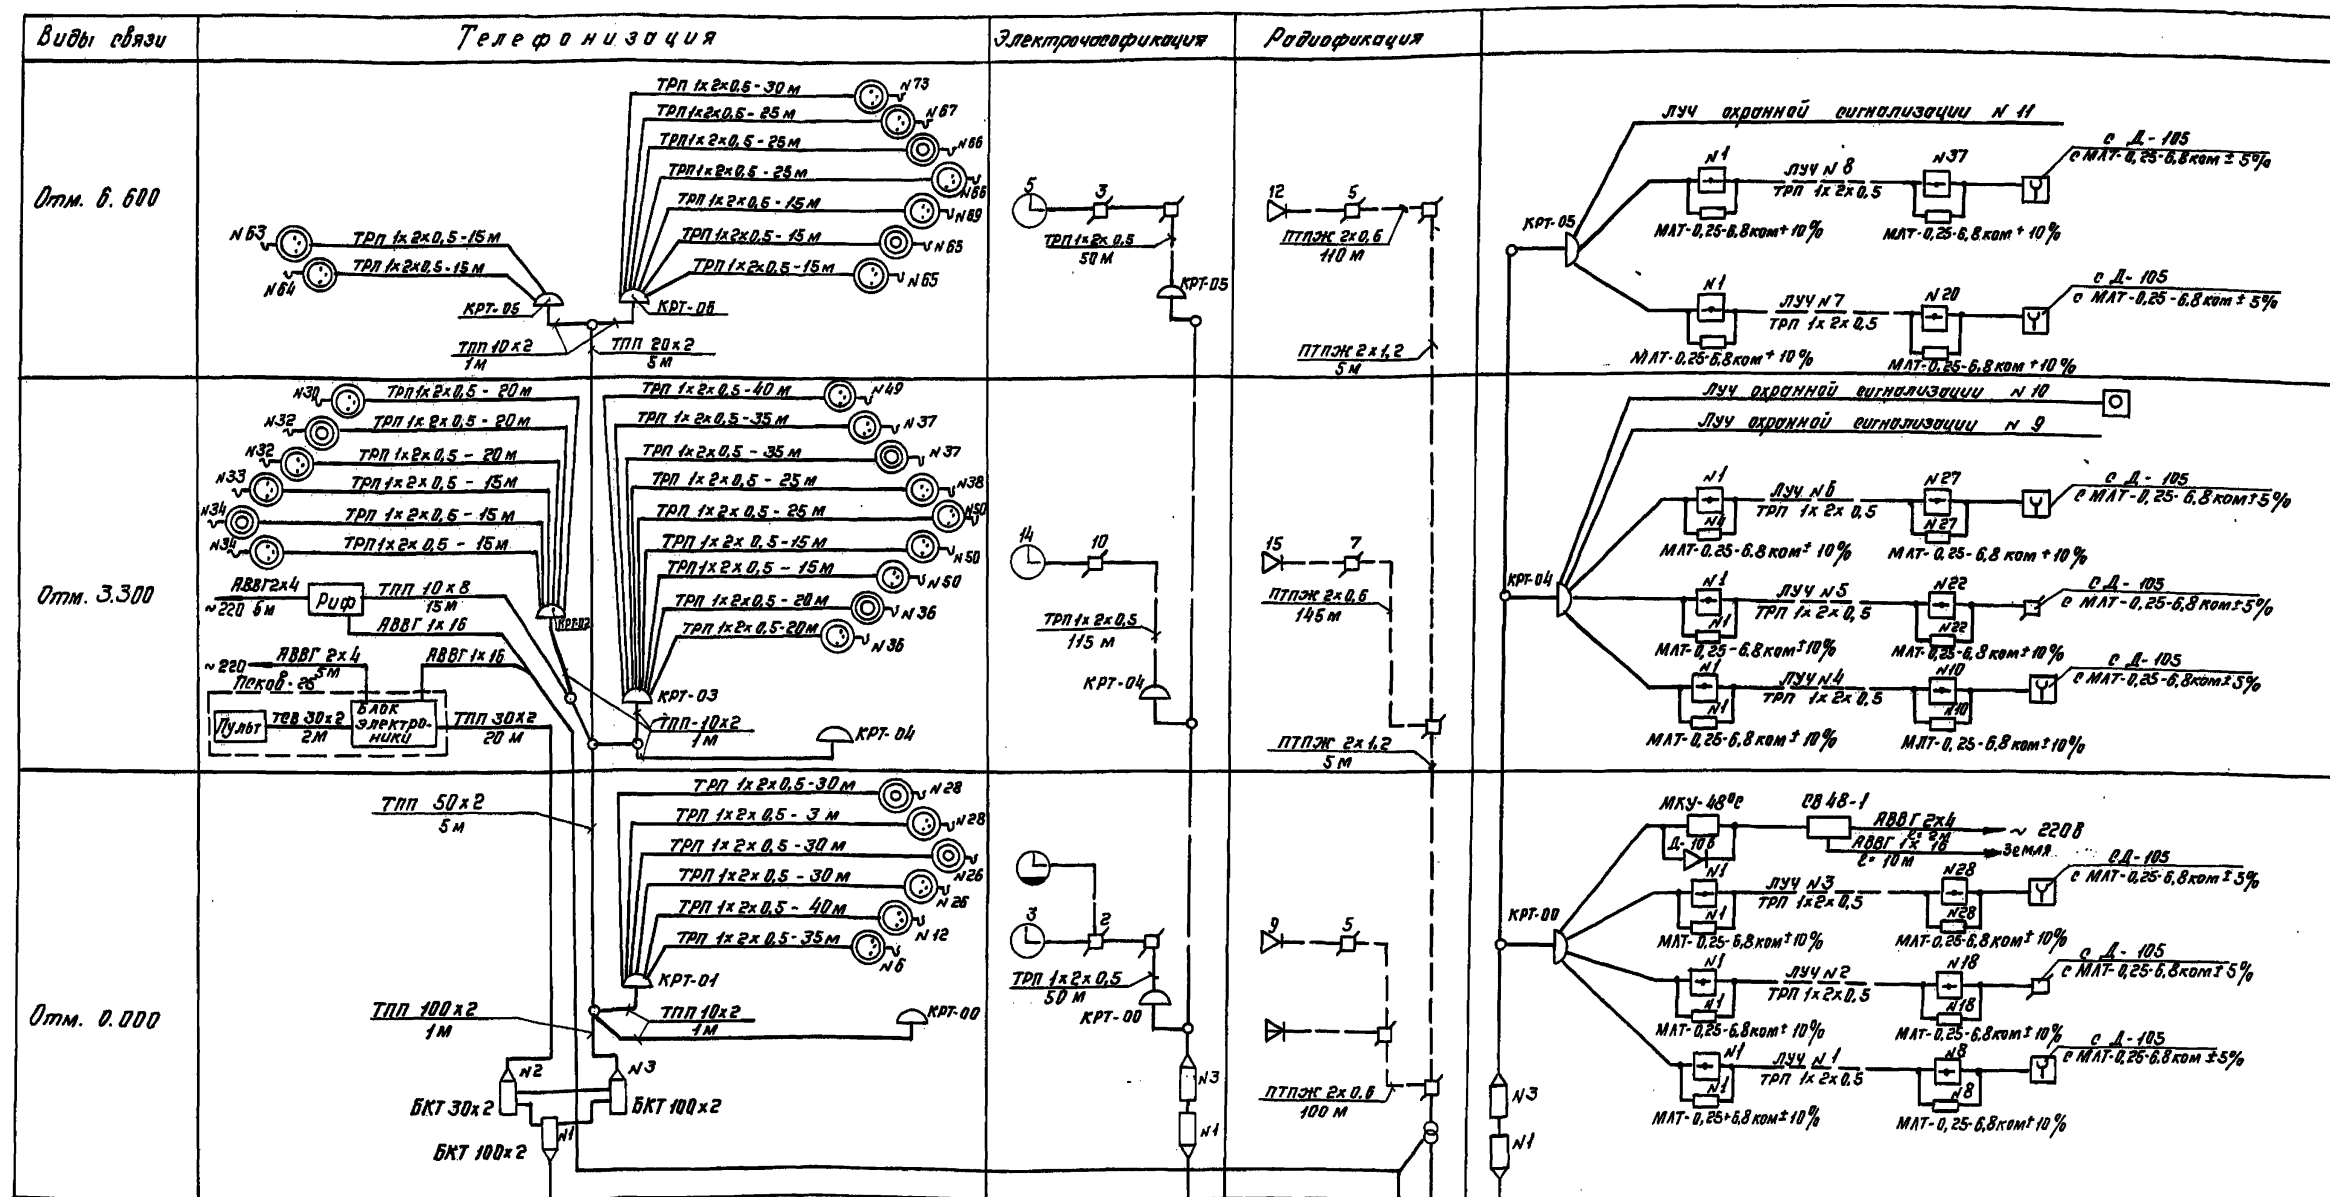 Виды связи
Телефонизация
Электрочасофикация
Радиофикация
Отм. 6.600
ТРП 1х2х0,5-30м
N73
ТРП 1х2х0,5-25м
N67
ТРП 1х2х0,5-25м
N66
ТРП 1х2х0,5-25м
N66
ТРП 1х2х0,5-15м
N69
ТРП 1х2х0,5-15м
N65
ТРП 1х2х0,5-15м
N65
N63
ТРП 1х2х0,5-15м
N64
ТРП 1х2х0,5-15м
КРТ-05
КРТ-06
ТПП 10х2
1м
ТПП 20х2
5м
5
3
ТРП 1х2х0,5
50м
КРТ-05
12
5
ПТПЖ 2х0,6
110м
ПТПЖ 2х1,2
5м
Луч охранной сигнализации N 11
КРТ-05
N1
Луч N 8
ТРП 1х2х0,5
N37
с Д-105
с МЛТ-0,25-6,8ком ± 5%
МЛТ-0,25-6,8ком + 10%
МЛТ-0,25-6,8ком + 10%
N1
Луч N7
ТРП 1х2х0,5
N20
с Д-105
с МЛТ-0,25-6,8ком ± 5%
МЛТ-0,25-6,8ком + 10%
МЛТ-0,25-6,8ком + 10%
Отм. 3.300
N30
ТРП 1х2х0,5-20м
N32
ТРП 1х2х0,5-20м
N32
ТРП 1х2х0,5-20м
N33
ТРП 1х2х0,5-15м
N34
ТРП 1х2х0,5-15м
N34
ТРП 1х2х0,5-15м
АВВГ2х4
~220 6м
Риф
ТПП 10х8
15м
АВВГ 1х16
КРТ-02
~220
АВВГ 2х4
5м
АВВГ 1х16
Псков-25
Пульт
ТСВ 30х2
2м
Блок
электро-
ники
ТПП 30х2
20м
ТРП 1х2х0,5-40м
N49
ТРП 1х2х0,5-35м
N37
ТРП 1х2х0,5-35м
N37
ТРП 1х2х0,5-25м
N38
ТРП 1х2х0,5-25м
N50
ТРП 1х2х0,5-15м
N50
ТРП 1х2х0,5-15м
N50
ТРП 1х2х0,5-20м
N36
ТРП 1х2х0,5-20м
N36
КРТ-03
ТПП-10х2
1м
КРТ-04
14
10
ТРП 1х2х0,5
115м
КРТ-04
15
7
ПТПЖ 2х0,6
145м
ПТПЖ 2х1,2
5м
Луч охранной сигнализации N 10
Луч охранной сигнализации N 9
КРТ-04
N1
Луч N6
ТРП 1х2х0,5
N27
с Д-105
с МЛТ-0,25-6,8ком±5%
N27
МЛТ-0,25-6,8ком± 10%
МЛТ-0,25-6,8ком + 10%
N1
Луч N5
ТРП 1х2х0,5
N22
с Д-105
с МЛТ-0,25-6,8ком±5%
N1
N22
МЛТ-0,25-6,8ком±10%
МЛТ-0,25-6,8ком±10%
N1
Луч N4
ТРП 1х2х0,5
N10
с Д-105
с МЛТ-0,25-6,8ком±5%
N1
N10
МЛТ-0,25-6,8ком± 10%
МЛТ-0,25-6,8ком±10%
Отм. 0.000
ТПП 50х2
5м
ТРП 1х2х0,5-30м
N28
ТРП 1х2х0,5-3м
N28
ТРП 1х2х0,5-30м
N26
ТРП 1х2х0,5-30м
N26
ТРП 1х2х0,5-40м
N12
ТРП 1х2х0,5-35м
N6
КРТ-01
ТПП 100х2
1м
ТПП 10х2
1м
КРТ-00
N2
N3
БКТ 30х2
БКТ 100х2
N1
БКТ 100х2
3
2
ТРП 1х2х0,5
50м
КРТ-00
N3
N1
9
5
ПТПЖ 2х0,6
100м
МКУ-48ºС
СВ 48-1
АВВГ 2х4
ℓ=2м
~ 220В
АВВГ 1х16
ℓ=10м
Земля
Д-106
КРТ-00
N1
Луч N3
ТРП 1х2х0,5
N28
сД-105
с МЛТ-0,25-6,8ком±5%
N1
N28
МЛТ-0,25-6,8ком±10%
МЛТ-0,25-6,8ком± 10%
N1
Луч N2
ТРП 1х2х0,5
N18
с Д-105
с МЛТ-0,25-6,8ком±5%
N1
N18
МЛТ-0,25-6,8ком± 10%
МЛТ-0,25-6,8ком± 10%
N1
Луч N 1
ТРП 1х2х0,5
N8
с Д-105
с МЛТ-0,25-6,8ком ±5%
N1
N8
МЛТ-0,25+6,8ком±10%
МЛТ-0,25-6,8ком±10%
N3
N1